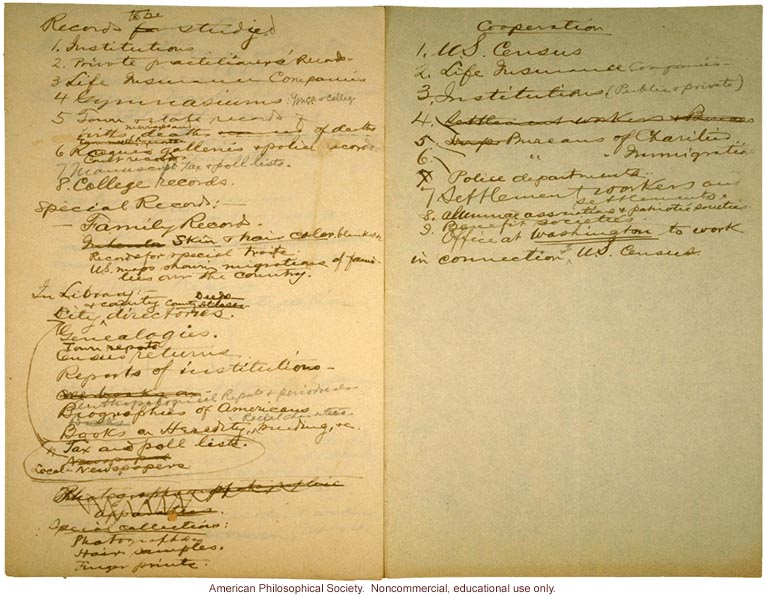 Records for to be studied
1. Institutions
2. Private practitioners' Records.
3 Life Insurance Companies
4 Gymnasiums. YMCA + College
5 Town + state records of
births, deaths marriages of deaths
6 Rogues Galleries + police records
Court records.
7 Manuscript Tax + poll lists.
8. College records.
Special Record:-
- Family Record.
Skin + hair color blanks
Records for special traits.
U.S. maps showing migrations of fami-
lies over the country.
In Library:-
+ county County Atlases Deeds
City directories.
Genealogies.
Town reports
Census returns
Reports of institutions -
books on
Anthropological Reports + periodicals
Biographies of Americans
Books on Heredity, breeding, &c.
Tax and poll lists.
Local Newspapers
Photographic
apparatus.
Special collections:
Photographs
Hair samples.
Finger prints.
Cooperation
1. U.S. Census
2. Life Insurance Companies -
3. Institutions (Public + private)
4. Settlement workers +
5 Bureaus of Charities
6. " " Immigration
8 Police departments.
7 Settlement workers and
settlements.
8. alumnae associations + patriotic societies
9. Benefit societies
Office at Washington to work
in connection with U.S. Census.
American Philosophical Society. Noncommercial, educational use only.